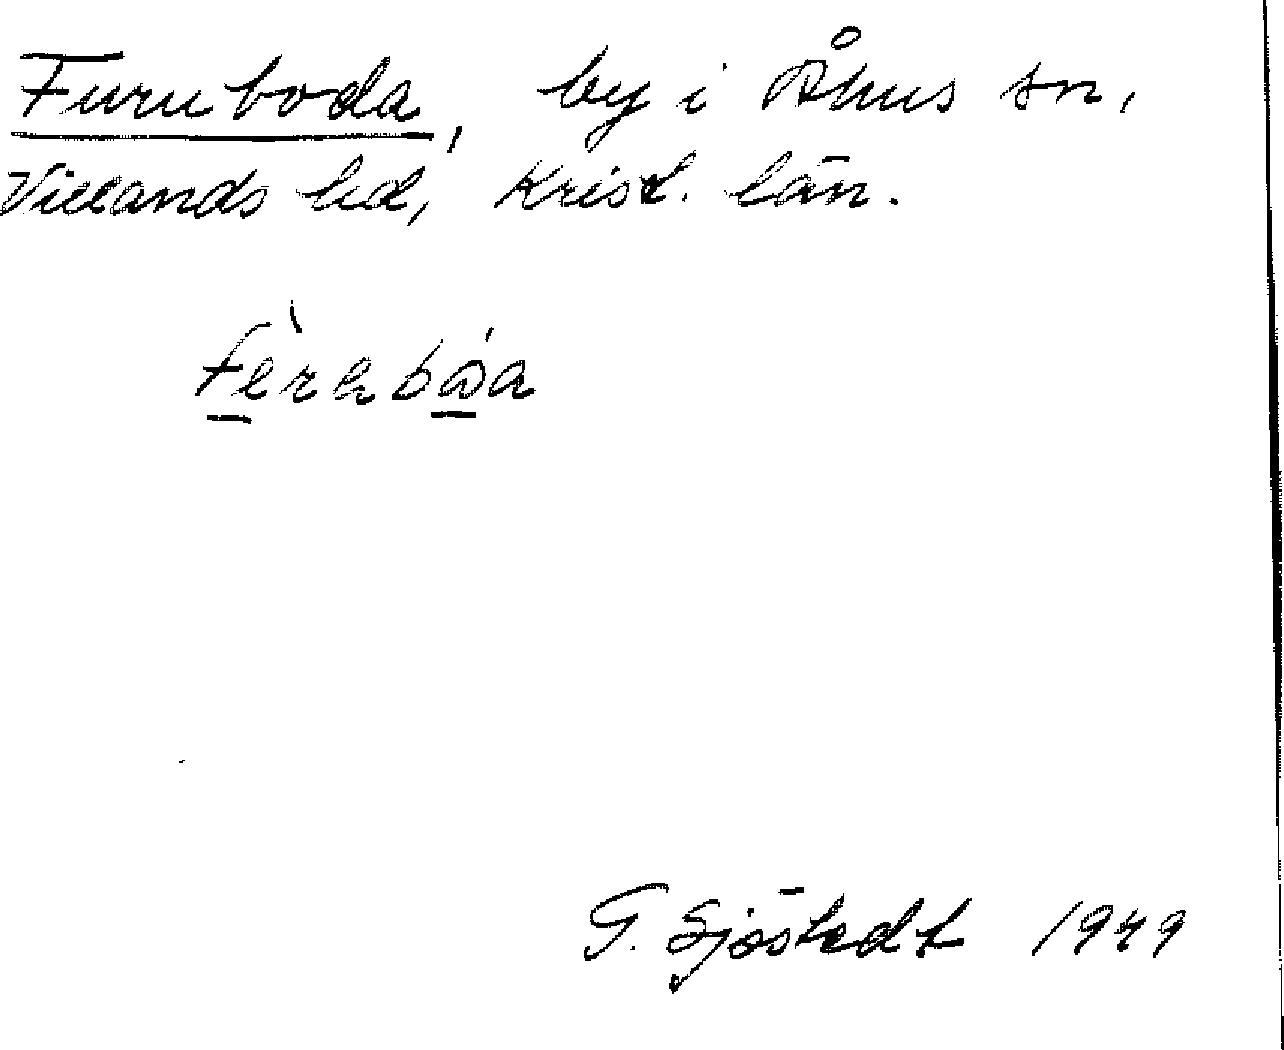 Furuboda, by i Åhus sn,
Villands hd, Krist. län.
G. Sjöstedt 1949